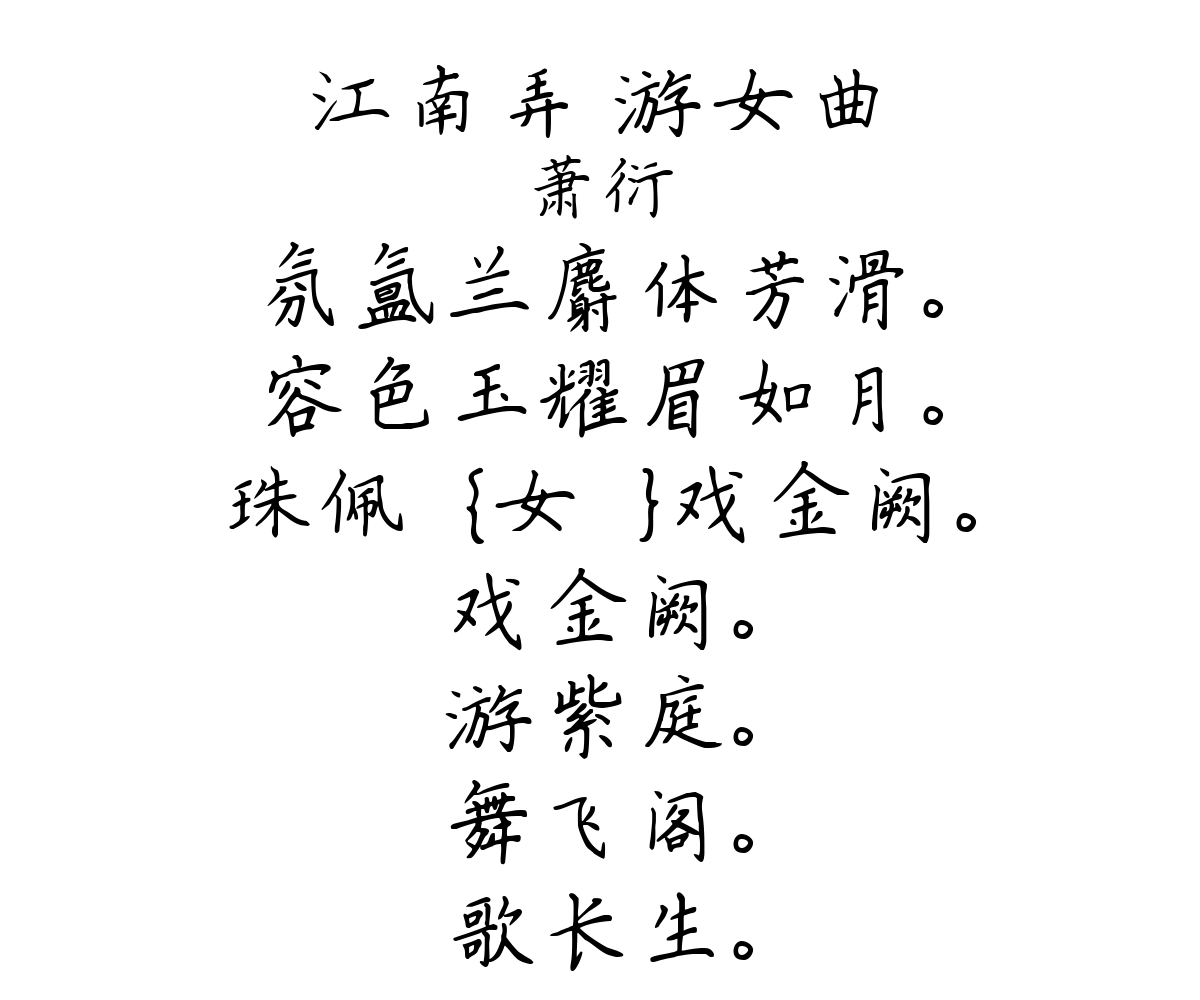 江南弄 游女曲
萧衍
氛氲兰麝体芳滑。
容色玉耀眉如月。
珠佩 {女 }戏金阙。
戏金阙。
游紫庭。
舞飞阁。
歌长生。